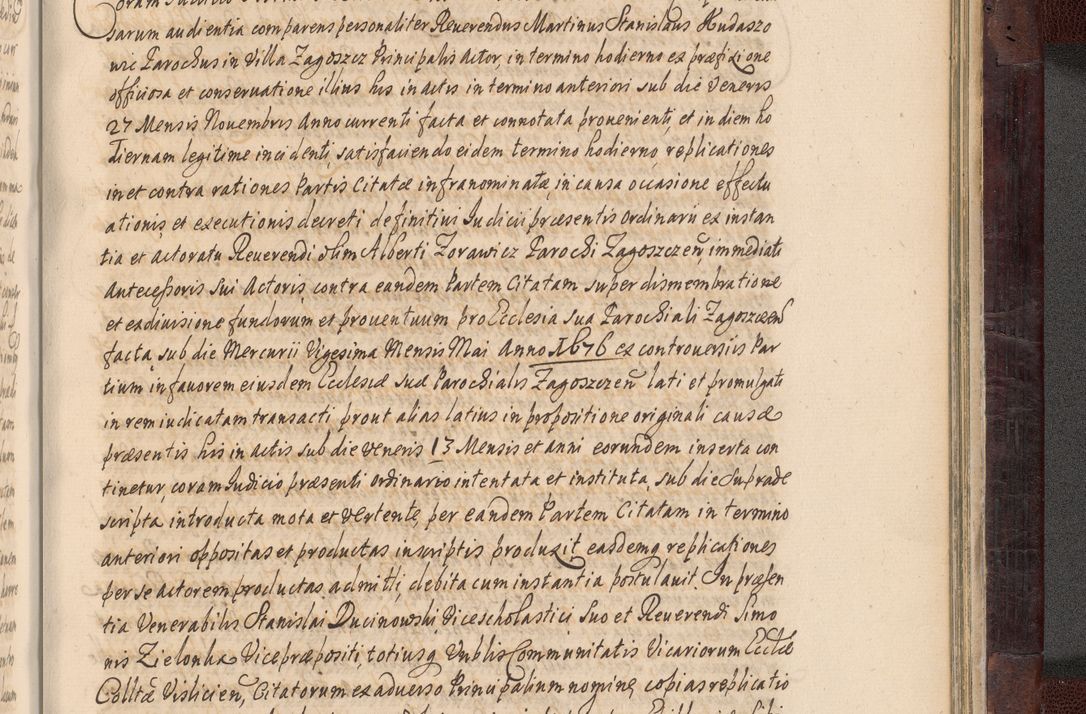 sarum audientia comparens personaliter Reverendus Martinus Stanislaus Hudaszo
wic Parochus in Villa Zagoszcz Principalis Actor, in termino hodierno ex præfixione
officiosa et conservatione illius his in actis in termino anteriori sub die Veneris
27 Mensis Novembris Anno currenti facta et connotata provenienti, et in diem ho
diernam legitime incidenti, satisfaciendo eidem termino hodierno replicationes
in et contra rationes Partis Citatæ infranominatæ in causa occasione effectu
ationis et executionis decreti definitivi Iudicii præsentis ordinarii ex instan
tia et actoratu Reverendi olim Alberti Zorawicz Parochi Zagoszczeñ immediati
Antecessoris sui Actoris, contra eandem Partem Citatam super dismembratione
et exdivisione fundorum et proventuum pro Ecclesia sua Parochiali Zagoszceñ
facta, sub die Mercurii Vigesima Mensis Mai Anno 1676 ex controversiis Par
tium in favorem eiusdem Ecclesiæ suæ Parochialis Zagoszczeñ lati et promulgati
in rem iudicatam transacti prout alias latius in propositione originali causæ
præsentis his in actis sub die Veneris 13 Mensis et anni eorundem inserta con
tinetur, coram Iudicio præsenti ordinario intentata et instituta, sub die suprade
scripta introducta mota et vertente, per eandem Partem Citatam in termino
anteriori oppositas et productas in scriptis produxit easdemq replicationes
per se actorem productas admitti, debita cum instantia postulavit. In præsen
tia Venerabilis Stanislai Ducinowski Vicescholastici suo et Reverendi Simo
nis Zielonka Vicepræpositi, totiusq Vnblis Communitatis Vicariorum Ecclæ
Colltæ Vislicieñ, Citatorum ex adverso Principalium nomine, copias replicatio